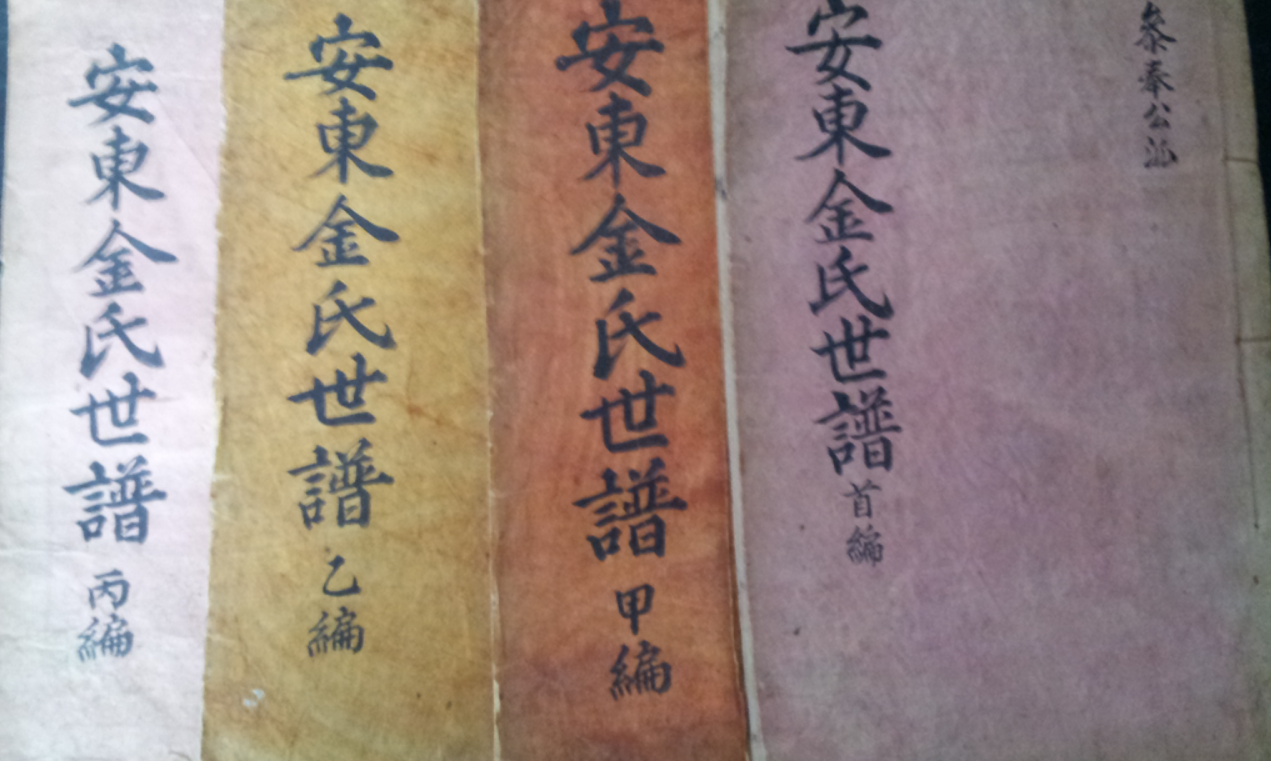 參奉公派
安東金氏世譜首編
安東金氏世譜甲編
安東金氏世譜乙編
安東金氏世譜丙編